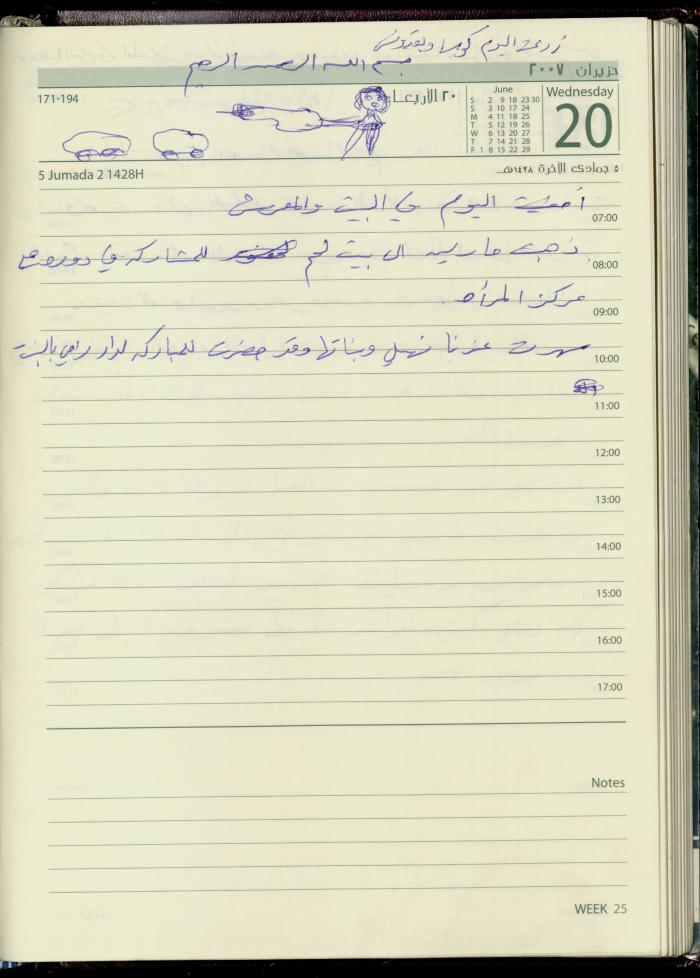 زرعت اليوم كوسا وبقدونس
بسم الله الرحمن الرحيم
حزيران ٢٠٠٧
171-194
٢٠ الأربعاء
June
S 2 9 16 23 30
S 3 10 17 24
M 4 11 18 25
T 5 12 19 26
W 6 13 20 27
T 7 14 21 28
F 1 8 15 22 29
Wednesday
20
5 Jumada 2 1428H
٥ جمادى الآخرة ١٤٢٨هـ
أمضيت اليوم في البيت والمعرش
07:00
ذهبت ماريا الى بيت لحم للمشاركة في دورة
08:00
مركز المرأة
09:00
سهرت عندنا نهيل وبناتها وقد حضرت للمباركة لدار رامي بالبنت
10:00
11:00
12:00
13:00
14:00
15:00
16:00
17:00
Notes
WEEK 25